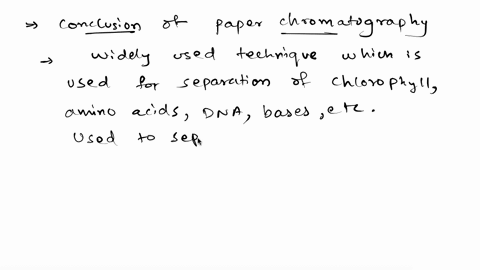 ⇒ conclusion of paper chromatography
→ widely used technique which is
used for separation of chlorophyll,
amino acids, DNA, bases, etc.
used to sep